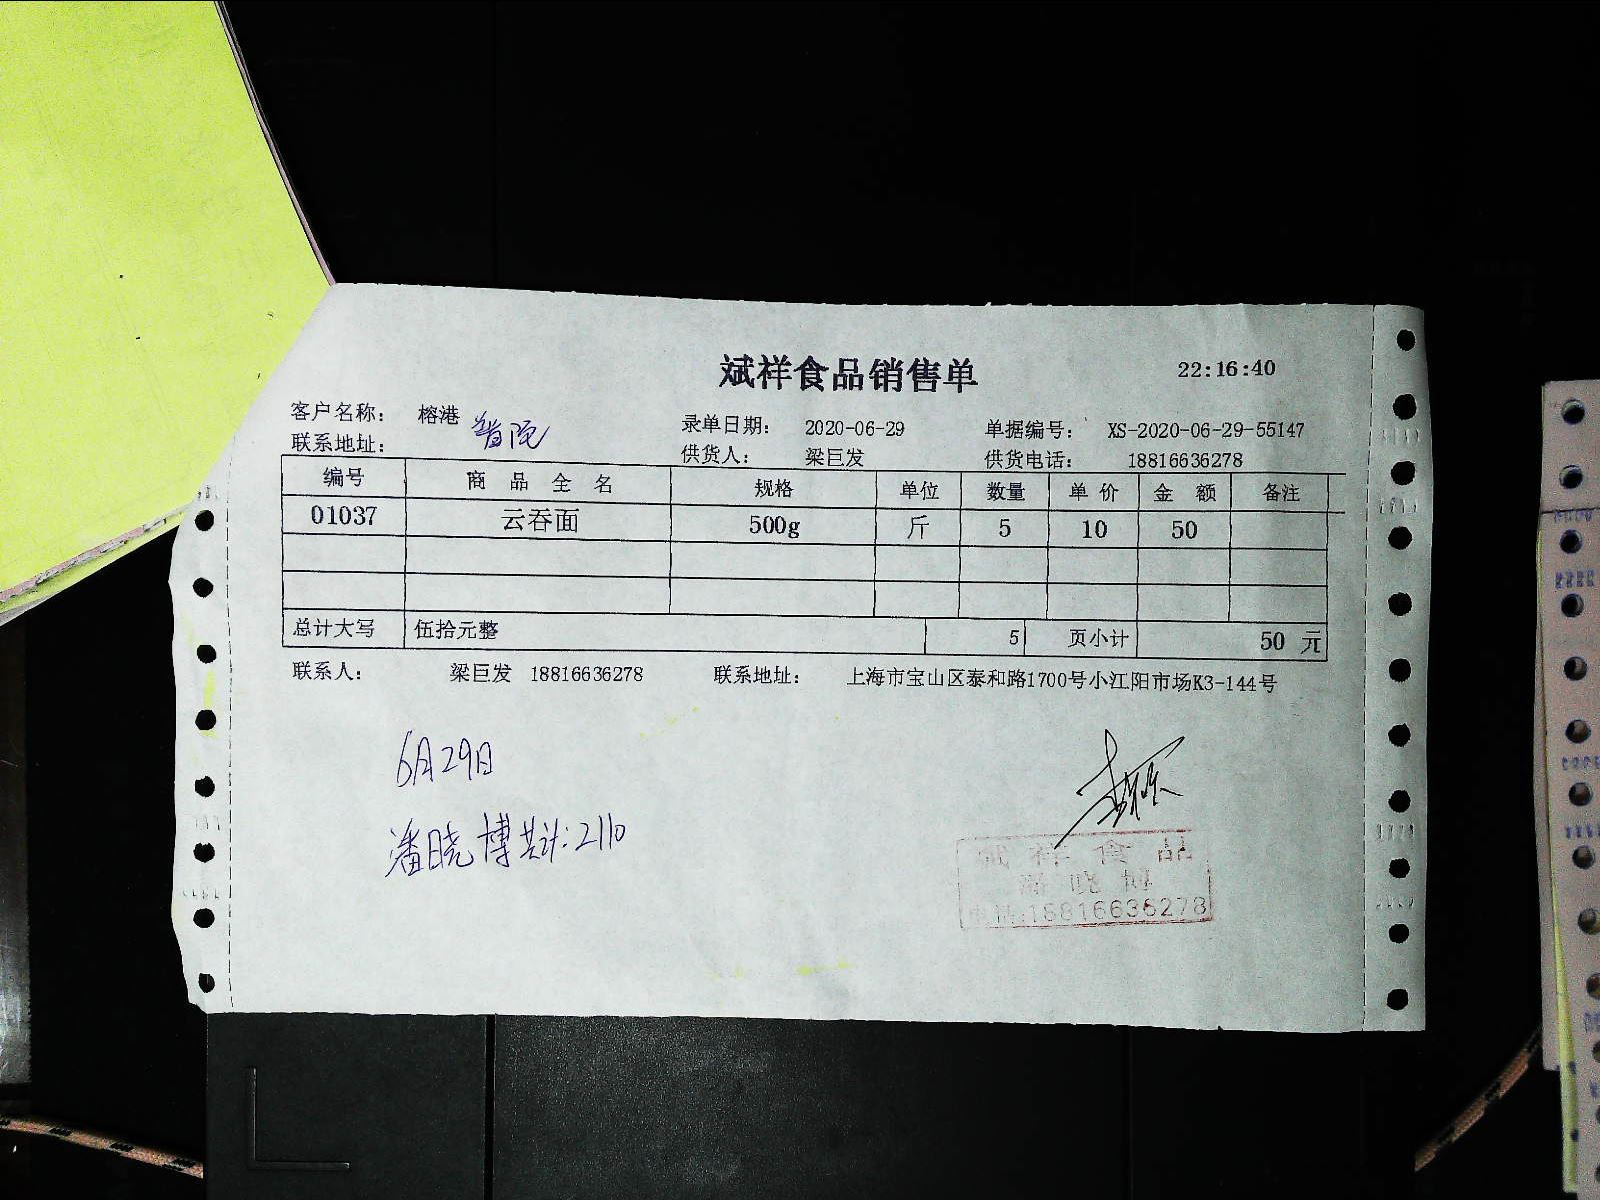 斌祥食品销售单 22:16:40
客户名称: 榕港 普陀 录单日期: 2020-06-29 单据编号: XS-2020-06-29-55147
联系地址: 供货人: 梁巨发 供货电话: 18816636278
编号 商品全名 规格 单位 数量 单价 金额 备注
01037 云吞面 500g 斤 5 10 50
总计大写 伍拾元整 5 页小计 50 元
联系人: 梁巨发 18816636278 联系地址: 上海市宝山区泰和路1700号小江阳市场K3-144号
6月29日
潘晓博共计:2110
斌祥食品
潘晓博
电话:18816636278